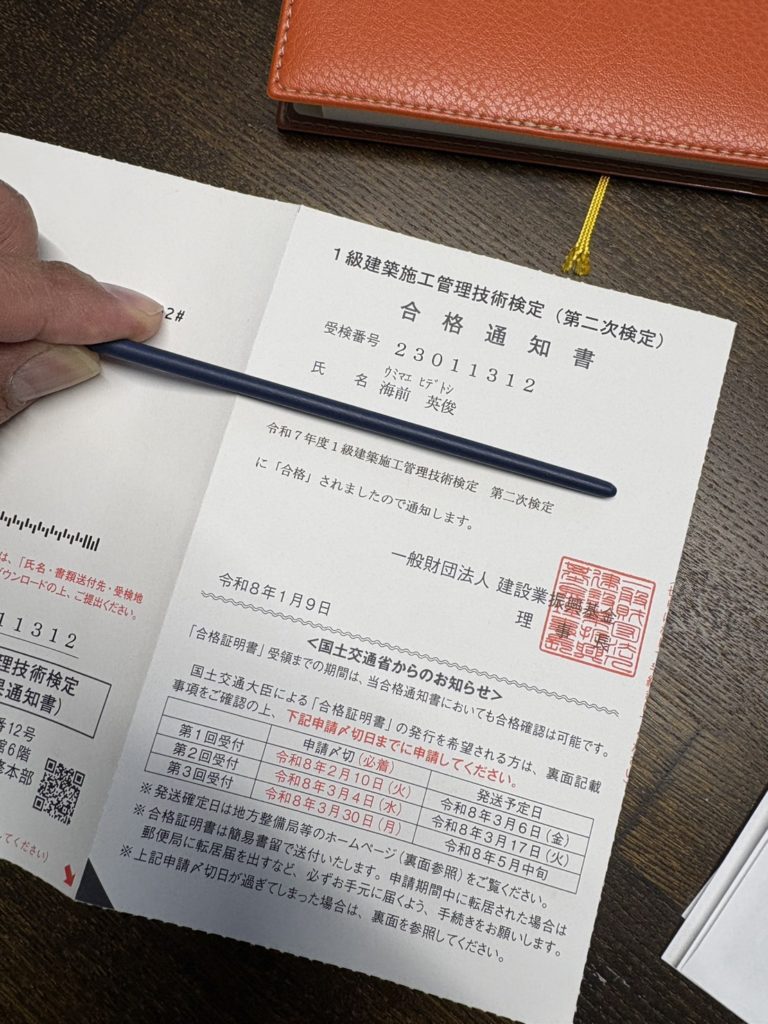 2#
は、「氏名・書類送付先・受検地
ウンロードの上、ご提出ください。
11312
理技術検定
通知書)
番12号
館6階
修本部
してください)
1級建築施工管理技術検定(第二次検定)
合格通知書
受検番号 23011312
ウミマエ ヒデトシ
氏名 海前 英俊
令和7年度1級建築施工管理技術検定 第二次検定
に「合格」されましたので通知します。
一般財団法人 建設業振興基金
理事長
令和8年1月9日
<国土交通省からのお知らせ>
「合格証明書」受領までの期間は、当合格通知書においても合格確認は可能です。
国土交通大臣による「合格証明書」の発行を希望される方は、裏面記載
事項をご確認の上、下記申請〆切日までに申請してください。
申請〆切(必着) 発送予定日
第1回受付 令和8年2月10日(火) 令和8年3月6日(金)
第2回受付 令和8年3月4日(水) 令和8年3月17日(火)
第3回受付 令和8年3月30日(月) 令和8年5月中旬
※発送確定日は地方整備局等のホームページ(裏面参照)をご覧ください。
※合格証明書は簡易書留で送付いたします。申請期間中に転居された場合は
郵便局に転居届を出すなど、必ずお手元に届くよう、手続きをお願いします。
※上記申請〆切日が過ぎてしまった場合は、裏面を参照してください。